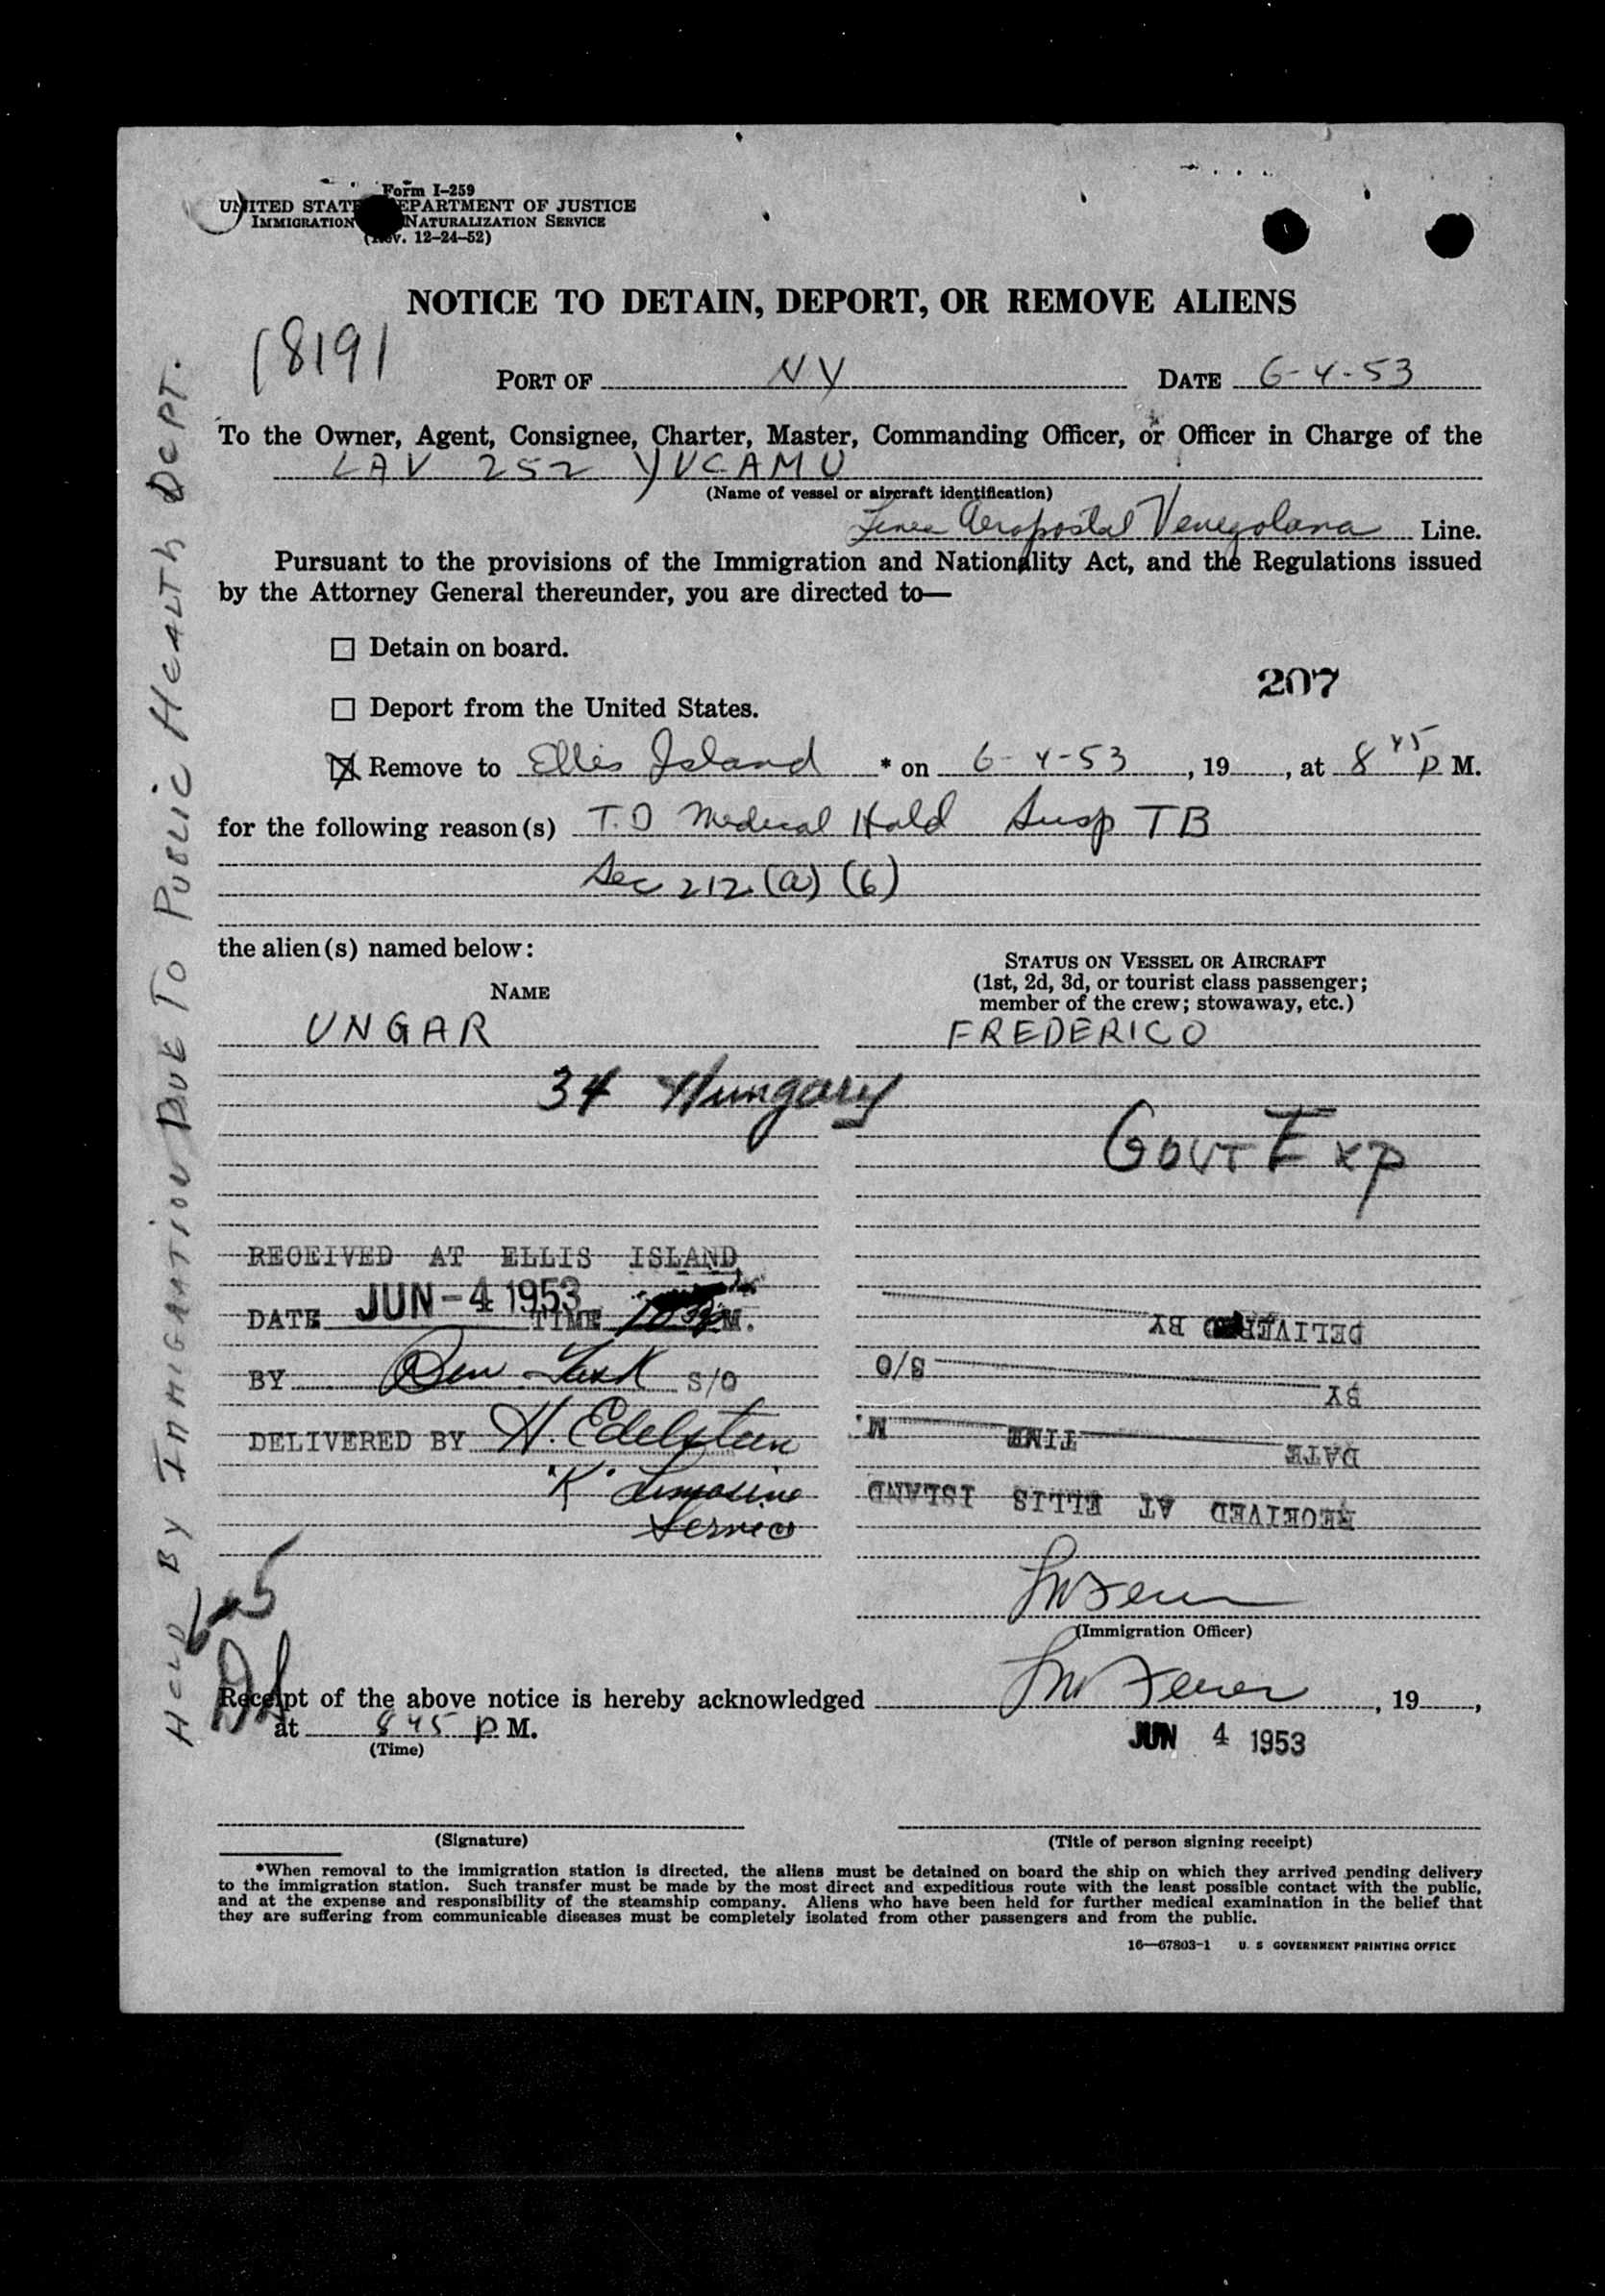 Form I-259
UNITED STATES DEPARTMENT OF JUSTICE
IMMIGRATION NATURALIZATION SERVICE
(Rev. 12-24-52)
NOTICE TO DETAIN, DEPORT, OR REMOVE ALIENS
18191
PORT OF NY DATE 6-4-53
To the Owner, Agent, Consignee, Charter, Master, Commanding Officer, or Officer in Charge of the
LAV 252 YVCAMU
(Name of vessel or aircraft identification)
Linea Aeropostal Venezolana Line.
Pursuant to the provisions of the Immigration and Nationality Act, and the Regulations issued
by the Attorney General thereunder, you are directed to—
Detain on board.
207
Deport from the United States.
Remove to Ellis Island * on 6-4-53, 19 , at 8 45 P M.
for the following reason(s) T.D Medical Hold Susp TB
Sec 212 (a) (6)
the alien(s) named below:
NAME
STATUS ON VESSEL OR AIRCRAFT
(1st, 2d, 3d, or tourist class passenger;
member of the crew; stowaway, etc.)
UNGAR FREDERICO
34 Hungary
GOVT Exp
RECEIVED AT ELLIS ISLAND
DATE JUN-4 1953 TIME M.
BY Ben S/O
DELIVERED BY H. Edelstein
"K" Limosine
Service
DELIVERED BY
BY S/O
DATE TIME M.
RECEIVED AT ELLIS ISLAND
(Immigration Officer)
Receipt of the above notice is hereby acknowledged , 19 ,
at 8 45 P M.
(Time)
JUN 4 1953
(Signature)
(Title of person signing receipt)
*When removal to the immigration station is directed, the aliens must be detained on board the ship on which they arrived pending delivery
to the immigration station. Such transfer must be made by the most direct and expeditious route with the least possible contact with the public,
and at the expense and responsibility of the steamship company. Aliens who have been held for further medical examination in the belief that
they are suffering from communicable diseases must be completely isolated from other passengers and from the public.
16—67803-1 U. S GOVERNMENT PRINTING OFFICE
HELD BY IMMIGRATION DUE TO PUBLIC HEALTH DEPT.